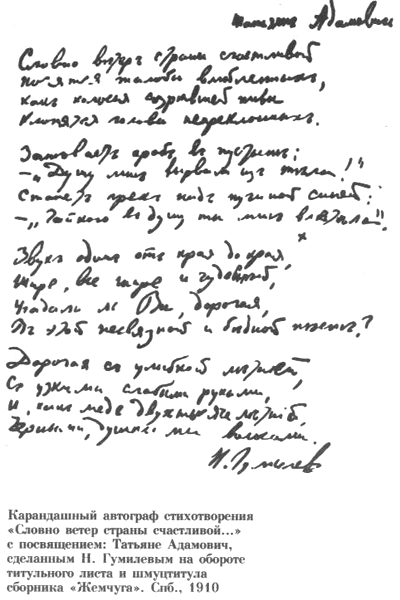 Татьянѣ Адамовичъ
Словно вѣтеръ страны счастливой
Носятся жалобы влюбленныхъ,
Какъ колосья созрѣвшей нивы
Клонятся головы непреклонныхъ.
Запѣваетъ арабъ въ пустынѣ:
— „Душу мнѣ вырвали изъ тѣла!“
Стонетъ грекъ надъ пучиной синей:
— „Чайкой въ душу ты мнѣ влетѣла“.
Звукъ одинъ отъ края до края,
Шире, все шире и чудесней,
Угадали ль Вы, дорогая,
Въ этой несвязной и бѣдной пѣснѣ?
Дорогая съ улыбкой лѣтней,
Съ узкими слабыми руками,
И, какъ медъ двухтысячелѣтній,
Черными, душными волосами.
Н. Гумилев
Карандашный автограф стихотворения
«Словно ветер страны счастливой...»
с посвящением: Татьяне Адамович,
сделанным Н. Гумилевым на обороте
титульного листа и шмуцтитула
сборника «Жемчуга». Спб., 1910